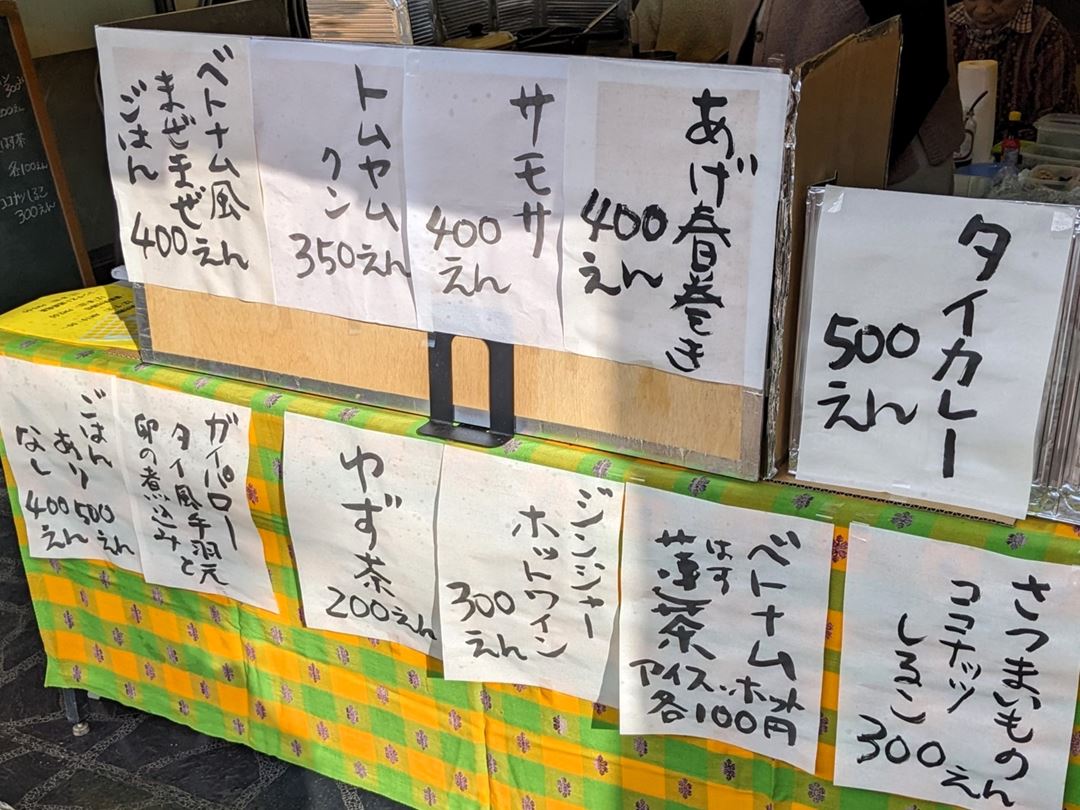 ベトナム風
まぜまぜ
ごはん
400えん
トムヤム
クン
350えん
サモサ
400
えん
あげ春巻き
400
えん
タイカレー
500
えん
ガイパロー
タイ風手羽元と
卵の煮込み
ごはん
あり500えん
なし400えん
ゆず茶
200えん
ジンジャー
ホットワイン
300
えん
ベトナム
はす
蓮茶
アイス、ホット
各100円
さつまいもの
ココナッツ
しるこ
300えん
茶
各100えん
300えん